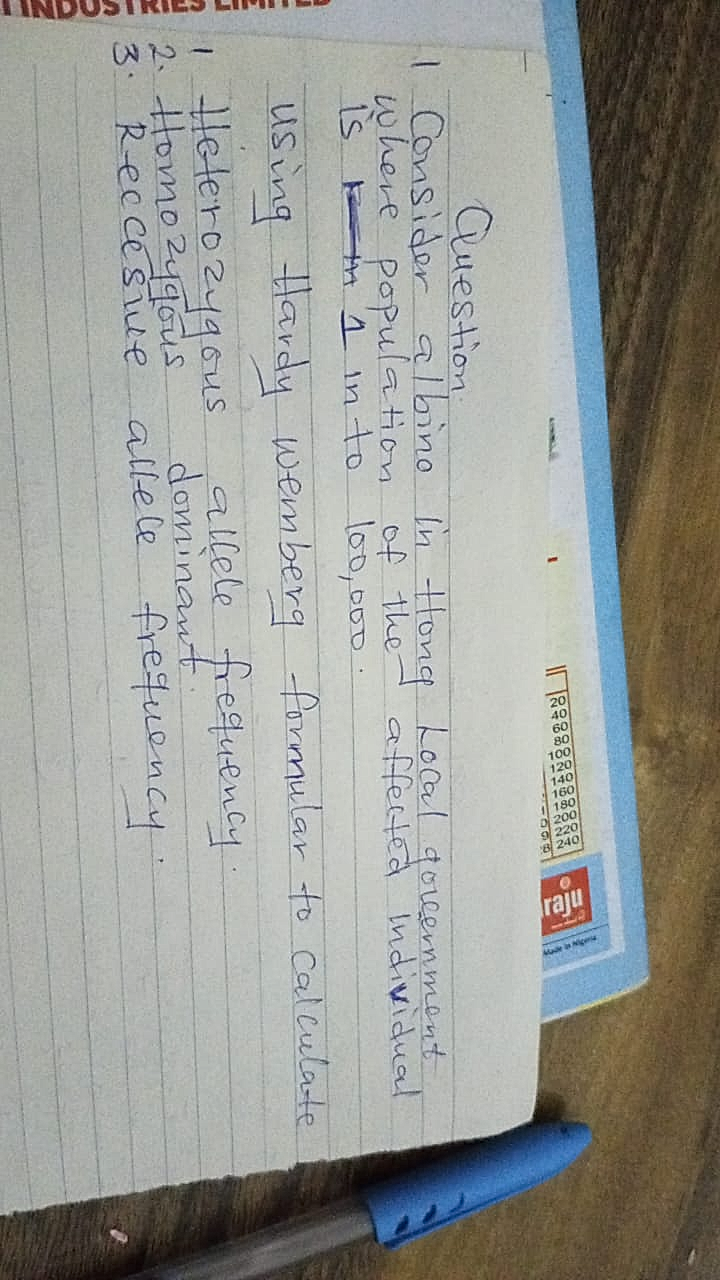 INDUSTRIES LIMITED
Question.
1 Consider albino in Hong Local government
where population of the affected individual
is 1 in to 100,000.
using Hardy wemberg formular to calculate
1 Heterozygous allele frequency.
2. Homozygous dominant.
3. Reccesive allele frequency.
20
40
60
80
100
120
140
160
180
200
220
240
raju
Made in Nigeria